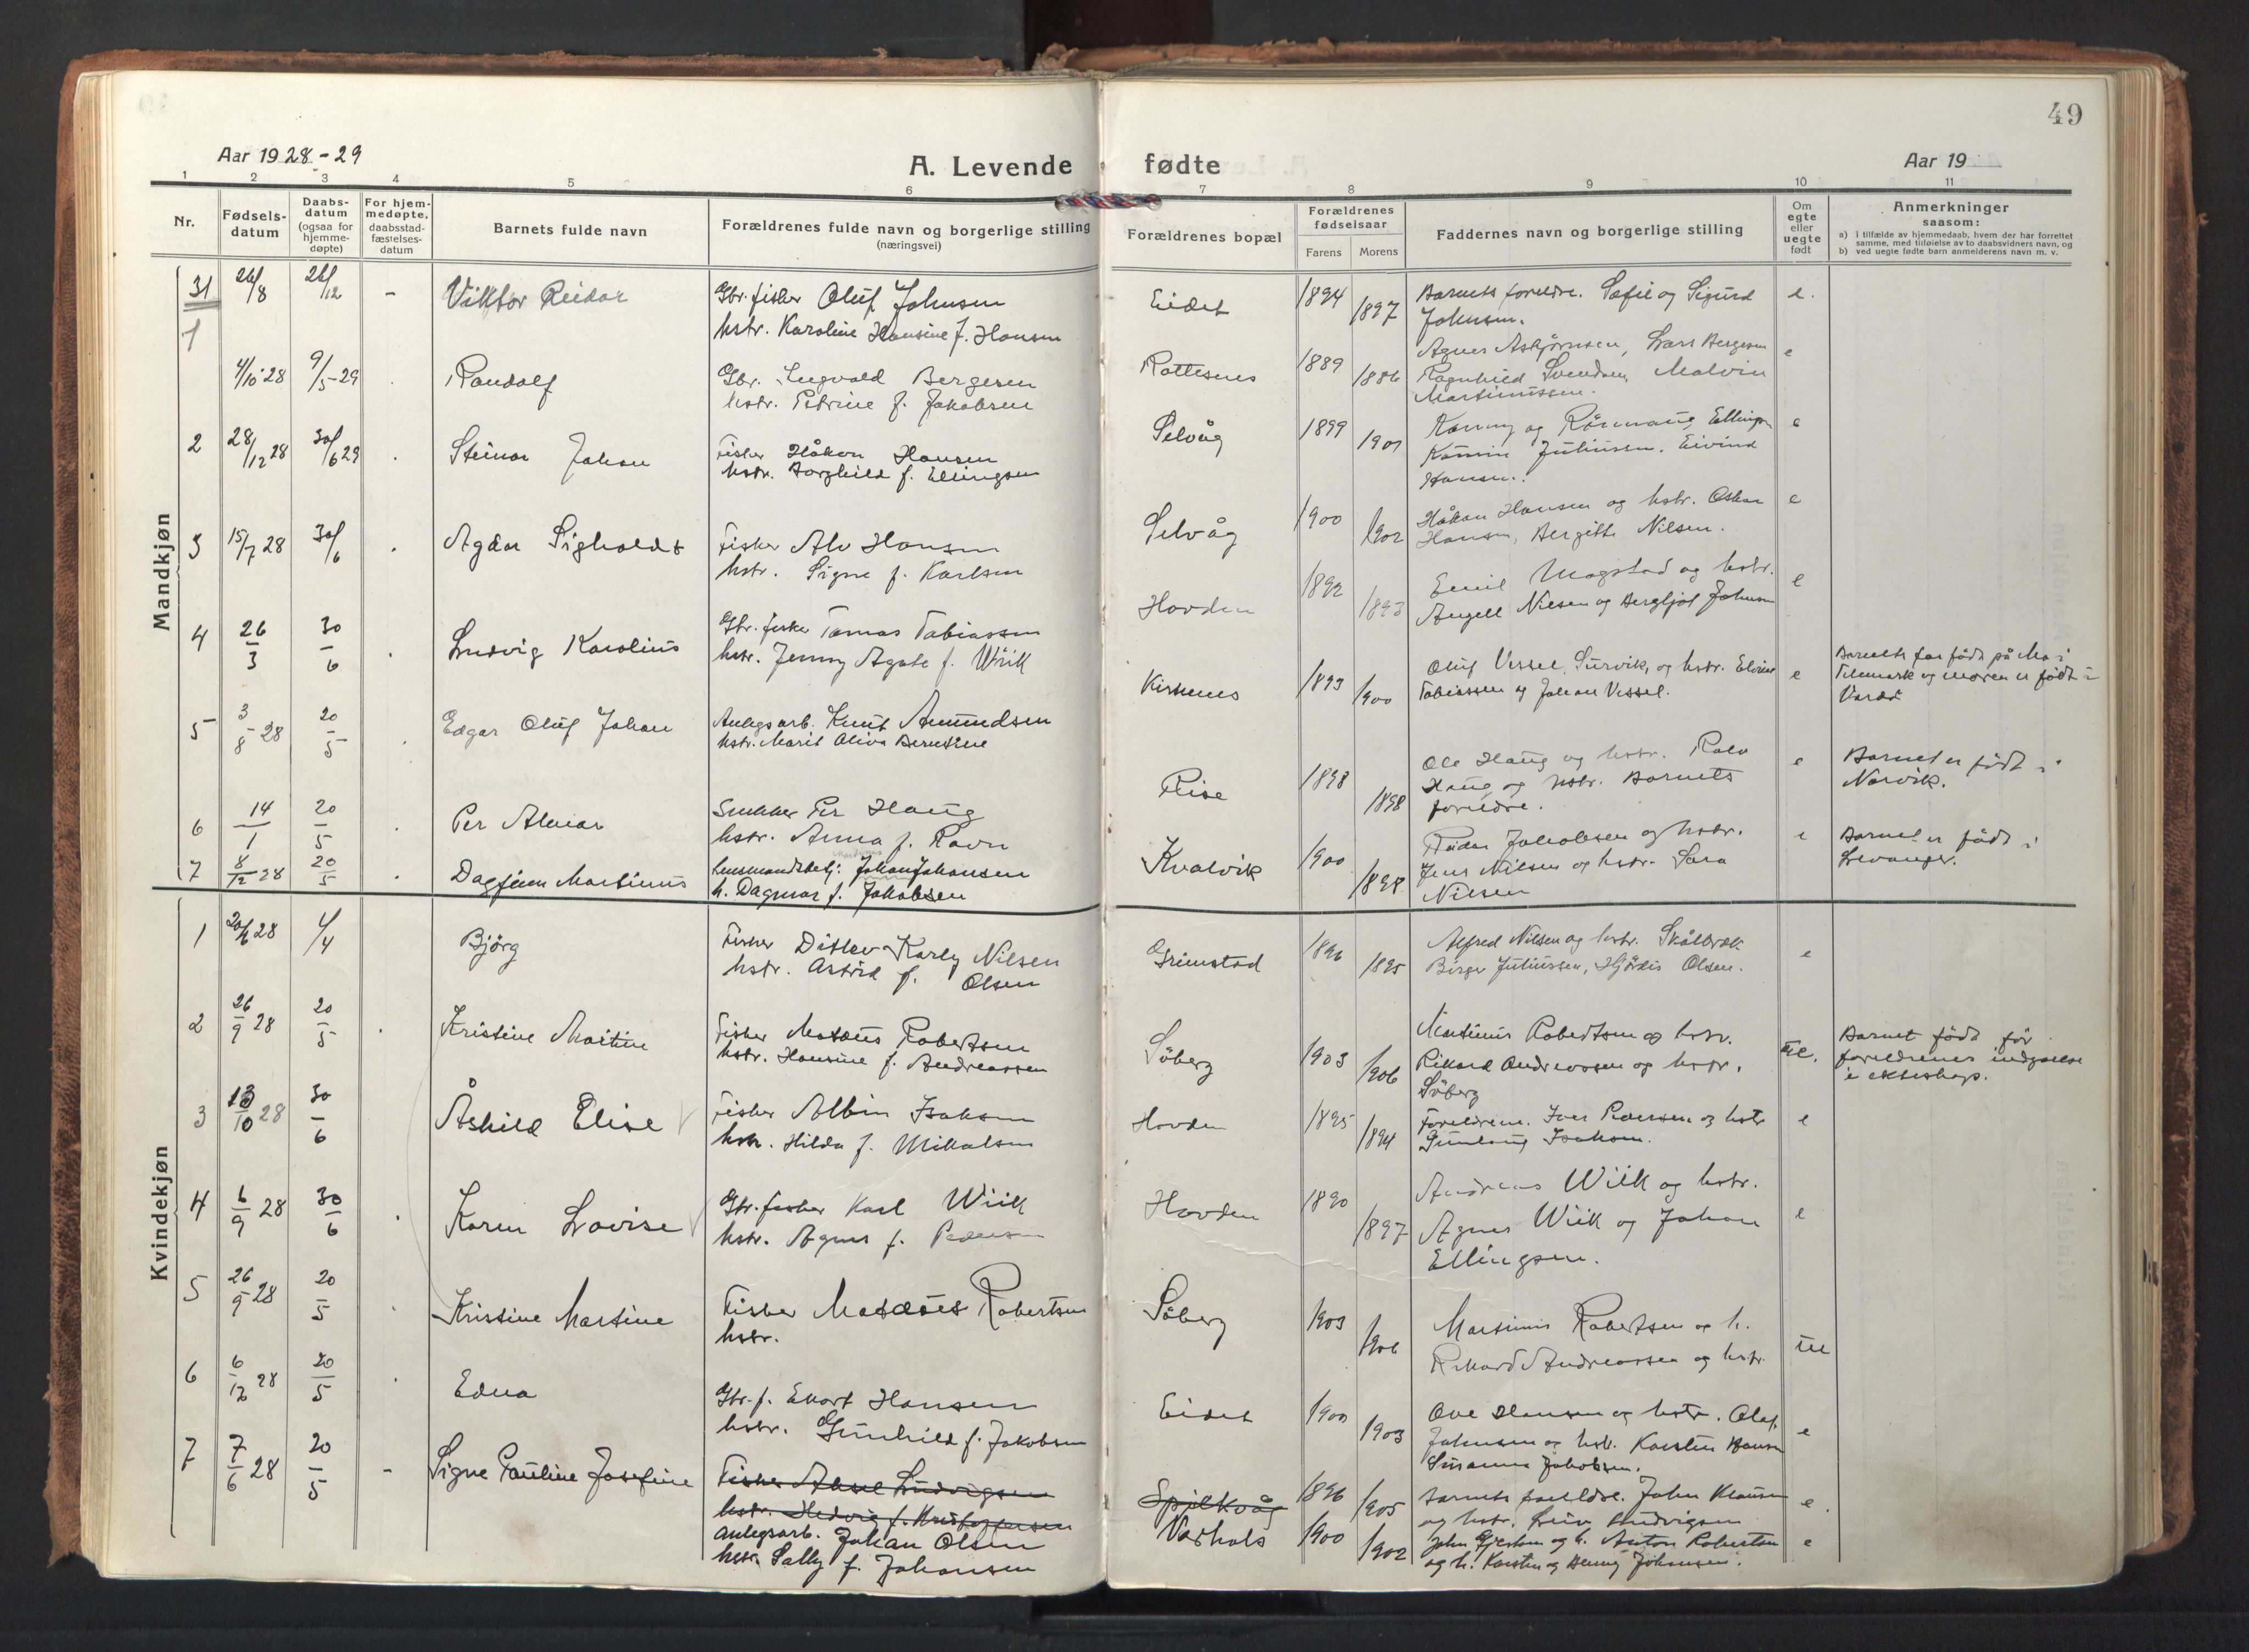 49
Aar 1928-29
A. Levende fødte
Aar 19
1 2 3 4 5 6 7 8 9 10 11
Nr.
Fødsels-
datum
Daabs-
datum
(ogsaa for
hjemme-
døpte)
For hjem-
medøpte,
daabsstad-
fæstelses-
datum
Barnets fulde navn
Forældrenes fulde navn og borgerlige stilling
(næringsvei)
Forældrenes bopæl
Forældrenes
fødselsaar
Farens Morens
Faddernes navn og borgerlige stilling
Om
egte
eller
uegte
født
Anmerkninger
saasom:
a) i tilfælde av hjemmedaab, hvem der har forrettet
samme, med tilføielse av to daabsvidners navn, og
b) ved uegte fødte barn anmelderens navn m. v.
Mandkjøn
31 26/8 26/12 - Viktor Reidar
Gbr. fisker Oluf Johnsen
hstr. Karoline Hansine f. Hansen
Eidet 1894 1897
Barnets foreldre. Sofie og Sigurd
Johnsen.
e.
1 4/10 28 9/5-29 Randolf
Gbr. Ingvald Bergesen
hstr. Petrine f. Jakobsen
Rottesnes 1889 1886
Agnes Asbjørnsen, Lars Bergesen
Ragnhild Svendsen, Malvin
Martinussen.
e
2 28/12 28 30/6 29 Steinar Johan
Fisker Håkon Hansen
hstr. Borghild f. Ellingsen
Selvåg 1899 1901
Konny og Rönnaug Ellingsen
Juliussen. Eivind
Hansen.
e
3 15/7 28 30/6 Agdar Sigholdt
Fisker Alv Hansen
hstr. Signe f. Karlsen
Selvåg 1900 1902
Håkon Hansen og hstr. Oskar
Hansen, Bergitte Nilsen.
e
4 26/3 30/6 Ludvig Karolius
Gbr. fisker Tomas Tobiassen
hstr. Jenny Agate f. Wiik
Hovden 1892 1893
Emil Mogstad og hstr.
Angell Nilsen og Bergljot Johnsen
e
5 3/8 28 20/5 Edgar Oluf Johan
Anlegsarb. Knut Amundsen
hstr. Marit Oliva Berntine
Kirkenes 1893 1900
Oluf Vessel, Survik, og hstr. Elvine
Tobiassen og Johan Vessel.
e
Barnets far født på Mo i
Telemark og moren er født i
Vardø
6 14/1 20/5 Per Almar
Snekker Per Haug
hstr. Anna f. Ravn
Rise 1898 1898
Ole Haug og hstr. Rolv
Haug og hstr. Barnets
foreldre.
e
Barnet er født i
Narvik.
7 8/12 28 20/5 Dagfinn Martinus
Lensmandsbetj. Johan Johansen
h. Dagmar f. Jakobsen
Kvalvik 1900 1898
Reidar Jakobsen og hstr.
Jens Nilsen og hstr. Sara
Nilsen
e
Barnet er født i
Levanger.
Kvindekjøn
1 20/6 28 1/4 Bjørg
Fisker Ditlev Karly Nilsen
hstr. Astrid f. Olsen
Grimstad 1896 1895
Alfred Nilsen og hstr. Skålbrek
Birger Juliussen, Hjördis Olsen.
e
2 26/9 28 20/5 Kristine Martine
Fisker Matæus Robertsen
hstr. Hansine f. Andreassen
Søberg 1903 1906
Martinus Robertsen og hstr.
Rikard Andreassen og hstr.
Søberg
Barnet født før
foreldrenes indgaaelse
i ekteskap.
3 13/10 28 30/6 Åshild Elise
Fisker Albin Isaksen
hstr. Hilda f. Mikalsen
Hovden 1895 1894
Foreldrene. Iver Pedersen og hstr
Gunlaug Isaksen.
e
4 6/9 28 30/6 Karin Lovise
Gbr. fisker Karl Wiik
hstr. Agnes f. Pedersen
Hovden 1890 1897
Andreas Wiik og hstr.
Agnes Wiik og Johan
Ellingsen.
e
5 26/9 28 20/5 Kristine Martine
Fisker Matæus Robertsen
hstr.
Søberg 1903 1906
Martinus Robertsen og h.
Rikard Andreassen og hstr.
6 6/12 28 20/5 Edna
Gbr. f. Ekart Hansen
hstr. Gunhild f. Jakobsen
Eidet 1900 1903
Ove Hansen og hstr. Olaf
Johnsen og hstr. Karsten Hansen
Susanna Jakobsen.
e
7 7/6 28 20/5 - Signe Pauline Josefine
Fisker Aksel Ludvigsen
hstr. Hedvig f. Kristoffersen
Anlegsarb. Johan Olsen
hstr. Sally f. Johansen
Spjelkvåg 1896 1905
Barnets foreldre. John Klausen
og hstr. Ludvigsen
e
Norhols 1900 1902
John og h. Anton Robertsen
og h. Karsten og Henny Johansen.
e